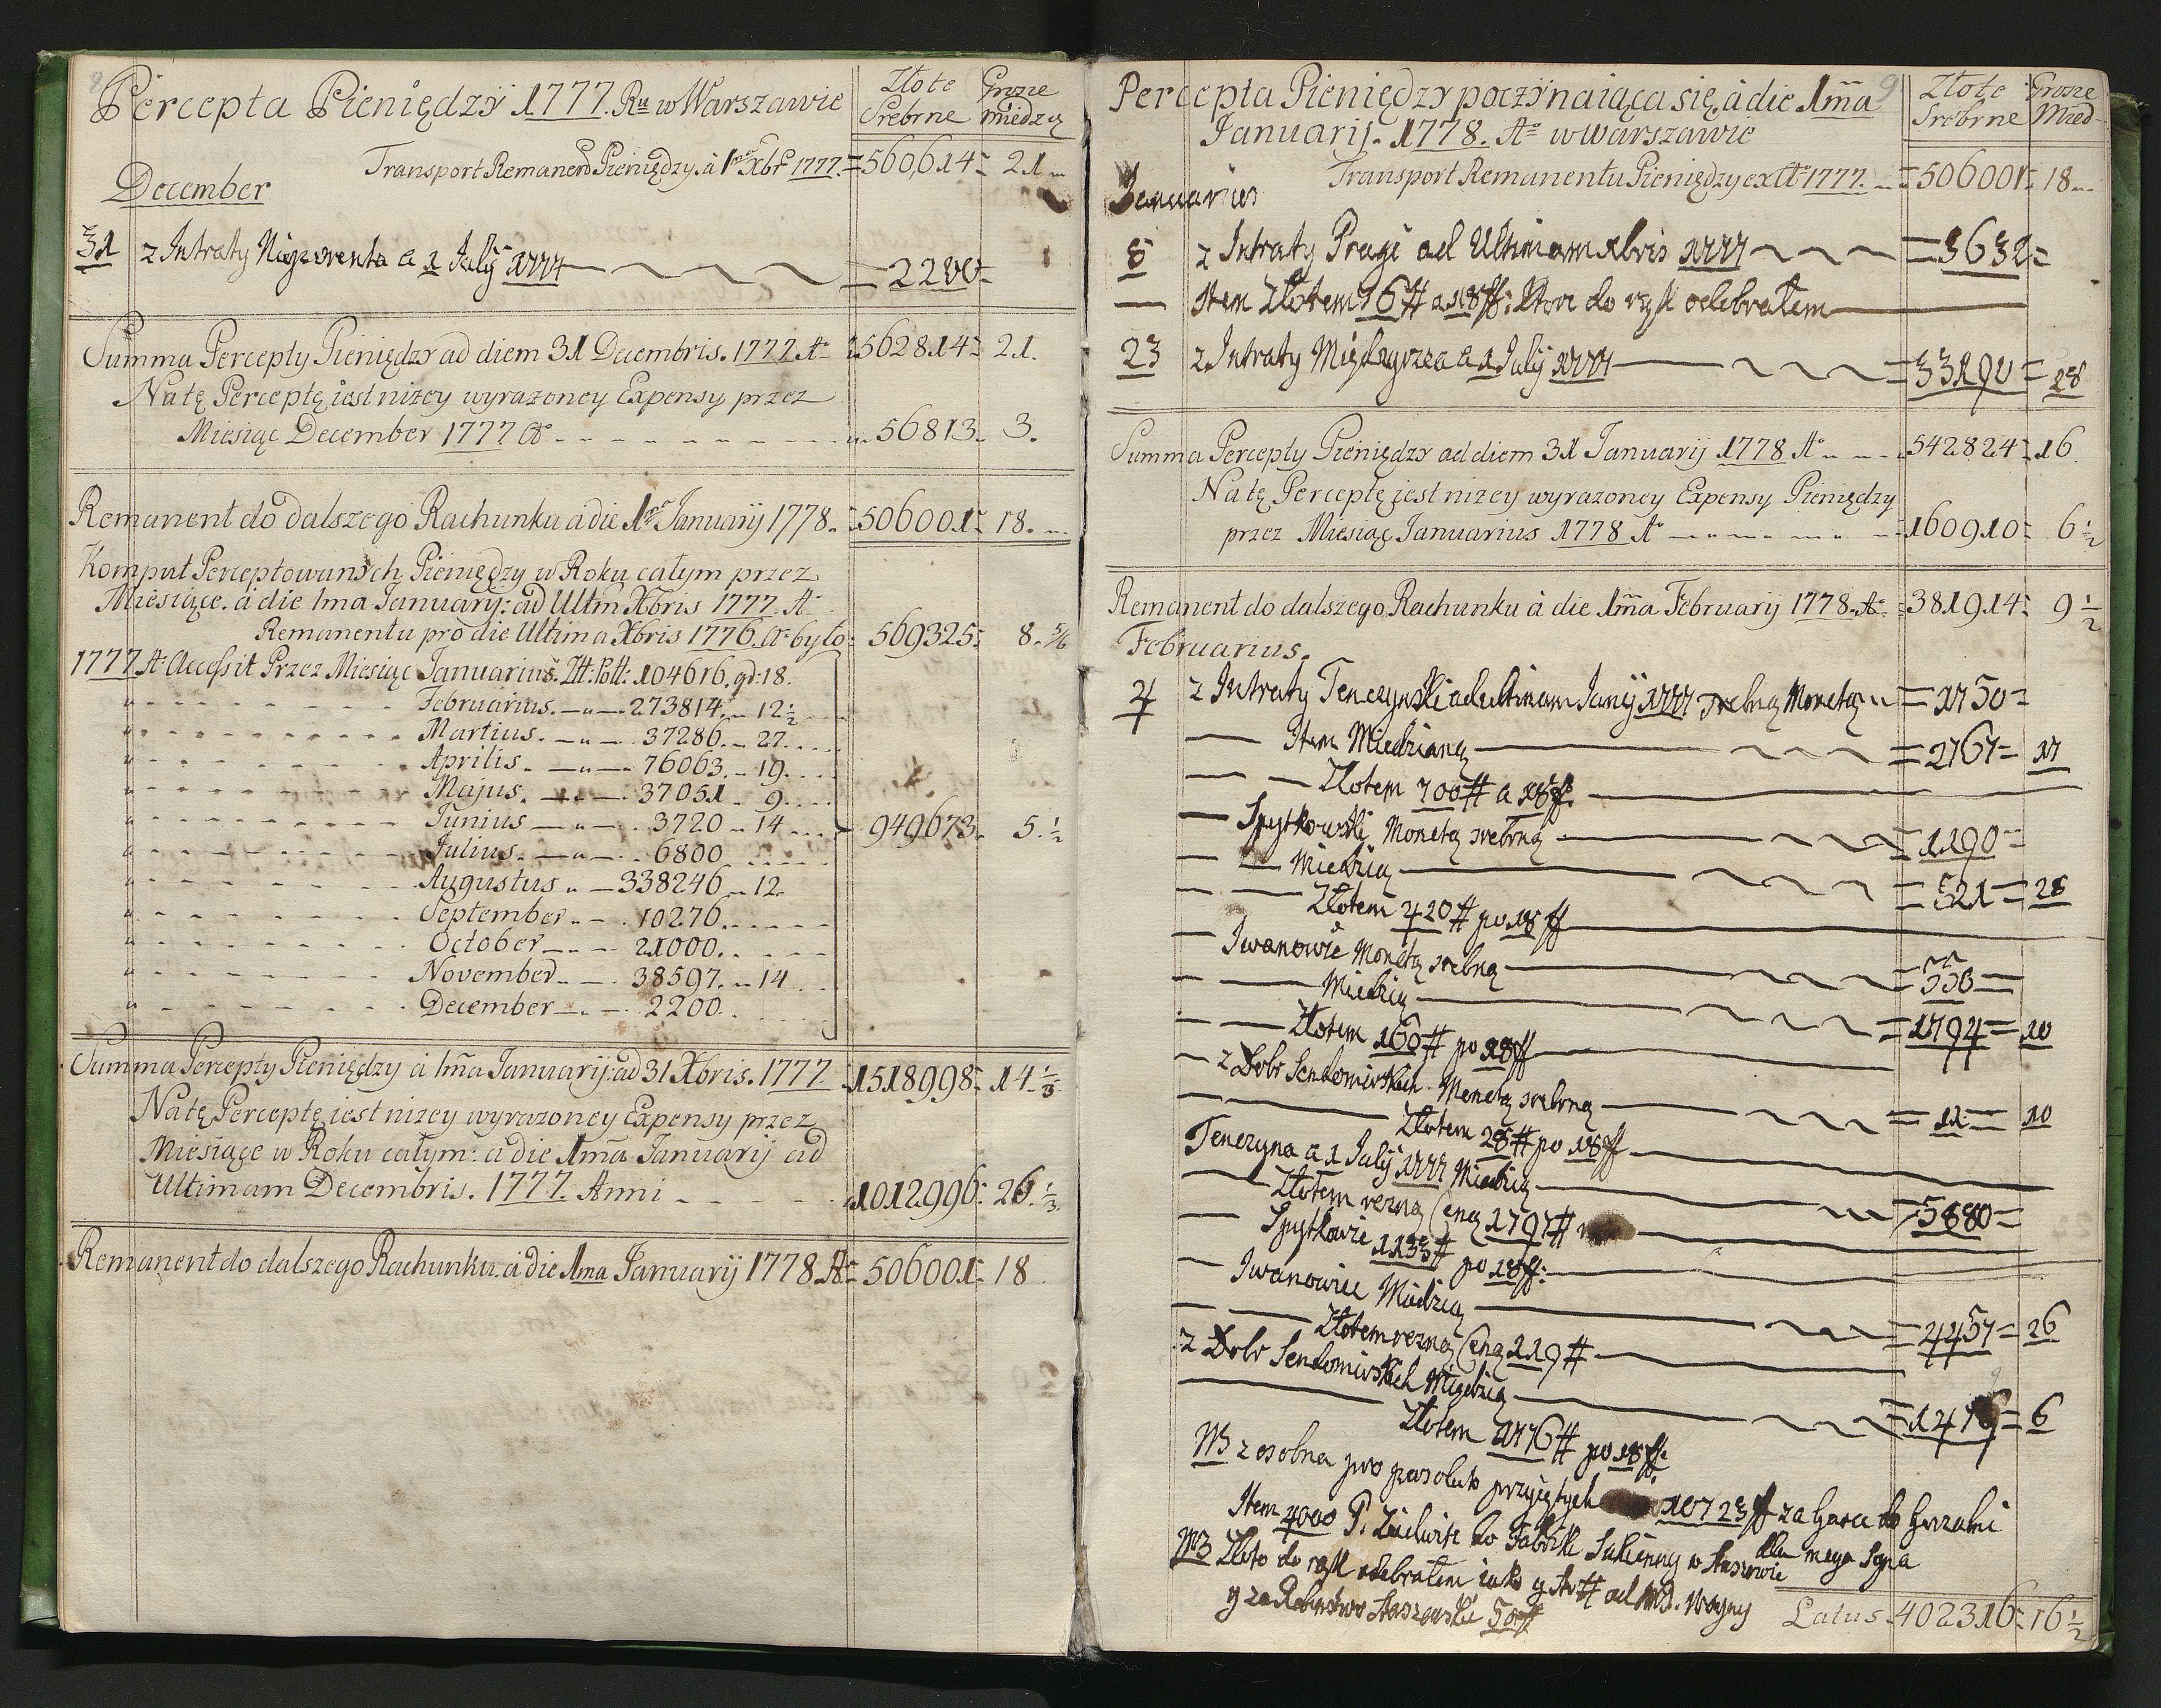 Percepta Pieniędzy 1777. Ru w Warszawie Złote Srebrne Grosze miedzą
Transport Remanen Pieniędzy à 1ma Xbr 1777. = 560614 = 21
December
31 z Intraty a 1 July 1777 = 2200 =
Summa Percepty Pieniędzy ad diem 31 Decembris. 1777. Ao 562814 = 21.
Na tę Perceptę iest niżey wyrazoney Expensy przez
Miesiąc December 1777 Ao 56813. 3.
Remanent do dalszego Rachunku a die 1ma Januarij 1778. 506001 = 18.
Komput Perceptowanych Pieniędzy w Roku całym przez
Miesiące. à die 1ma January: ad Ultm Xbris 1777. A.
Remanentu pro die Ultima Xbris 1776. Ao było 569325 = 8. 5/6
1777. A. Accessit Przez Miesiąc Januarius. Złt: Poll: 104616. gr: 18.
Februarius. 273814. 12 1/2
Martius. 37286. 27.
Aprilis. 76063. 19.
Majus. 37051. 9.
Junius 3720 14 949673. 5. 1/2
Julius. 6800
Augustus 338246 12.
September 10276.
October 21000.
November 38597. 14
December 2200.
Summa Percepty Pieniędzy à 1ma Januarij: ad 31 Xbris. 1777. 1518998 = 14 1/3
Na tę Perceptę iest niżey wyrazoney Expensy przez
Miesiące w Roku całym: a die 1ma Januarij ad
Ultimam Decembris. 1777. Anni 1012996. 26. 1/3
Remanent do dalszego Rachunku. à die 1ma Januarij 1778. A. 506001 = 18
9
Percepta Pieniędzy poczynaiąca się, à die 1ma Złote Srebrne Grosze Mied
Januarij. 1778. Ao w Warszawie
Transport Remanentu Pieniędzy ex Ao 1777. = 506001 = 18
Januarius
8 z Intraty Pragi ad Ultimam Xbris 1777 = 3632 =
Item Złotem 16 # a 18 ff: ktore do rąk odebrałem
23 z Intraty a 1 July 1777 = 33190 = 28
Summa Percepty Pieniędzy ad diem 31 Januarij 1778 Ao 542824 = 16
Na tę Perceptę jest niżey wyrazoney Expensy Pieniędzy
przez Miesiąc Januarius 1778 Ao 160910 = 6 1/2
Remanent do dalszego Rachunku à die 1ma Februarij 1778. Ao 381914 = 9 1/2
Februarius.
4 z Intraty Tenczynski ad ultimam Junij 1777 srebną Monetą = 1750 =
Item Miedzianą = 2767 = 17
Złotem 700 # a 18 ff.
Spytkowski Monetą srebrną = 1190 =
Miedzią = 521 = 28
Złotem 420 # po 18 ff
Iwanowie Monetą srebną = 550 =
Miedzią = 1794 = 10
Złotem 160 # po 18 ff
z Dobr Sendomirskich Monetą srebrną = 12 = 10
Złotem 28 # po 18 ff
Tenczyna a 1 July 1777 Miedzią = 5880 =
Złotem rezną Ceną 1797 #
Spytkowie 1133 # po 18 ff:
Iwanowice Miedzią = 4457 = 26
Złotem rezną Ceną 119 #
z Dobr Sendomirskich Miedzią = 6
Złotem # po 18 ff.
NB z osobna pro przyiętych 10723 ff za
Item 4000 P. do Fabriki Sukienney w Staszowie dla mego Syna
NB Złoto do rąk odebrałem iako y # od
y za Staszewskie 50 #
Latus 402316 = 16 1/2